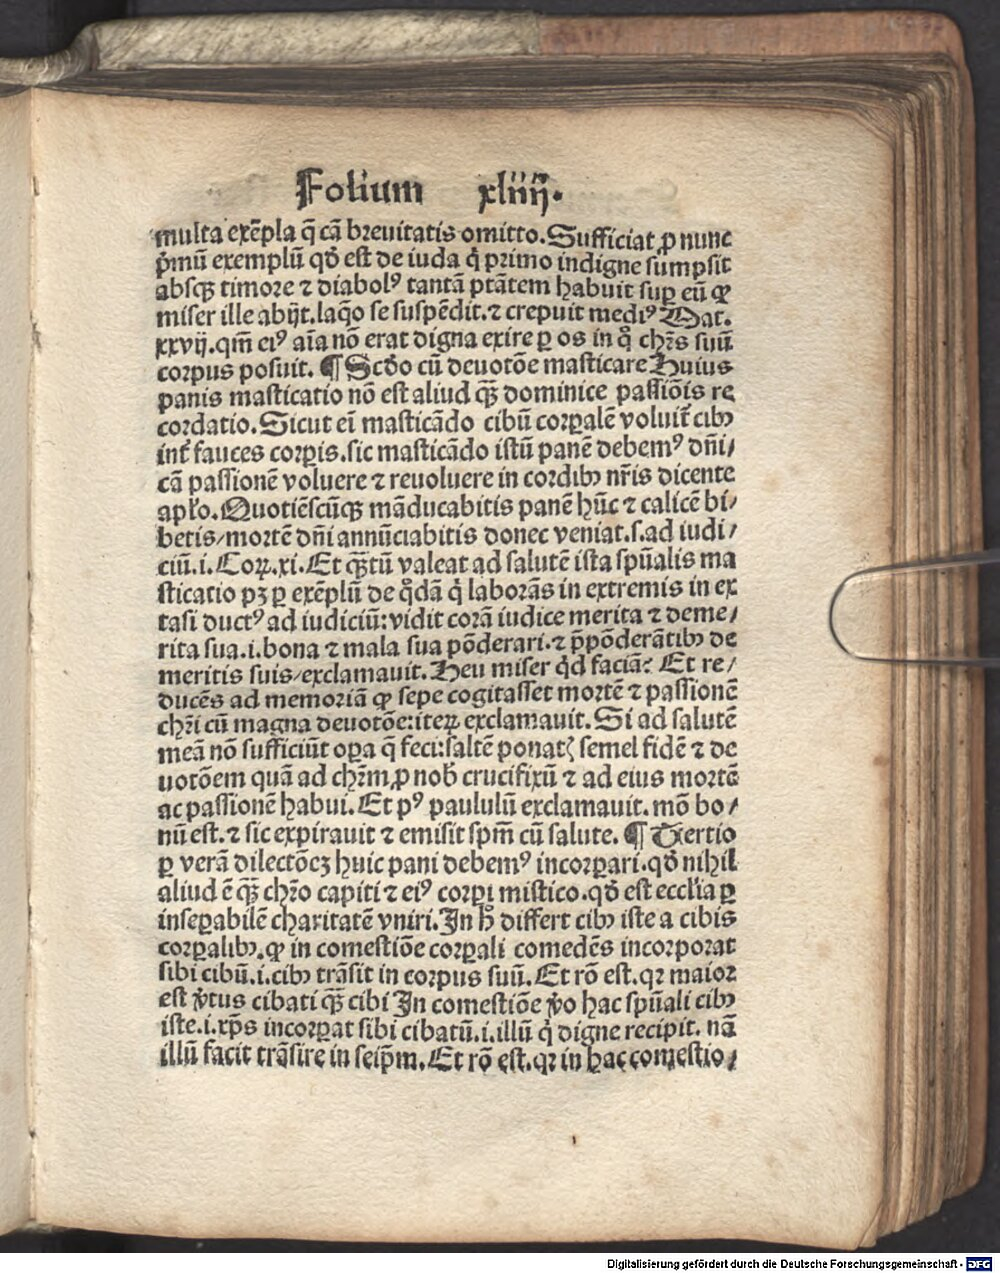 Folium xliiij.
multa exēpla q̄ cā breuitatis omitto. Sufficiat ꝓ nunc
p̄mū exemplū qd̄ est de iuda q̇ primo indigne sumpsit
absqꝫ timore ⁊ diabolꝰ tantā ptātem habuit suꝑ eū ꝙ
miser ille abijt. laq̄o se suspēdit. ⁊ crepuit mediꝰ Mat.
xxvij. qm̄ eiꝰ aīa nō erat digna exire ꝑ os in q̊ chr̄s suū
corpus posuit. ¶ Scd̄o cū deuotōe masticare Huius
panis masticatio nō est aliud qꝫ̄ dominice passiōis re
cordatio. Sicut eī masticādo cibū corꝑalē voluit̄ cibꝫ
int̄ fauces corpis. sic masticādo istū panē debemꝰ dn̄i/
cā passionē voluere ⁊ reuoluere in cordibꝫ nr̄is dicente
apl̄o. Quotiēscūqꝫ māducabitis panē hūc ⁊ calicē bi/
betis/mortē dn̄i annūciabitis donec veniat. s. ad iudi/
ciū. i. Coꝝ. xi. Et qꝫ̄tū valeat ad salutē ista spūalis ma
sticatio pꝫ ꝑ exēplū de q̊dā q̇ laborās in extremis in ex
tasi ductꝰ ad iudiciū: vidit corā iudice merita ⁊ deme/
rita sua. i. bona ⁊ mala sua pōderari. ⁊ p̄pōderātibꝫ de
meritis suis/exclamauit. Heu miser qḋ faciā? Et re/
ducēs ad memoriā ꝙ sepe cogitasset mortē ⁊ passionē
chr̄i cū magna deuotōe: iteꝝ exclamauit. Si ad salutē
meā nō sufficiūt oꝑa q̄ feci: saltē ponatᷣ semel fidē ⁊ de
uotōem quā ad chr̄m ꝓ nob̄ crucifixū ⁊ ad eius mortē
ac passionē habui. Et pꝰ paululū exclamauit. mō bo/
nū est. ⁊ sic expirauit ⁊ emisit spm̄ cū salute. ¶ Tertio
ꝑ verā dilectōeꝫ huic pani debemꝰ incorꝑari. qd̄ nihil
aliud ē qꝫ̄ chr̄o capiti ⁊ eiꝰ corꝑi mistico. qd̄ est eccl̄ia ꝑ
inseꝑabilē charitatē vniri. In h̊ differt cibꝫ iste a cibis
corꝑalibꝫ. ꝙ in comestiōe corꝑali comedēs incorporat
sibi cibū. i. cibꝫ trāsit in corpus suū. Et rō est. qr maior
est v̄tus cibati qꝫ̄ cibi In comestiōe v̊o hac spūali cibꝫ
iste. i. xp̄s incorꝑat sibi cibatū. i. illū q̇ digne recipit. nā
illū facit trāsire in seip̄m. Et rō est. qr in hac comestio/
Digitalisierung gefördert durch die Deutsche Forschungsgemeinschaft - DFG